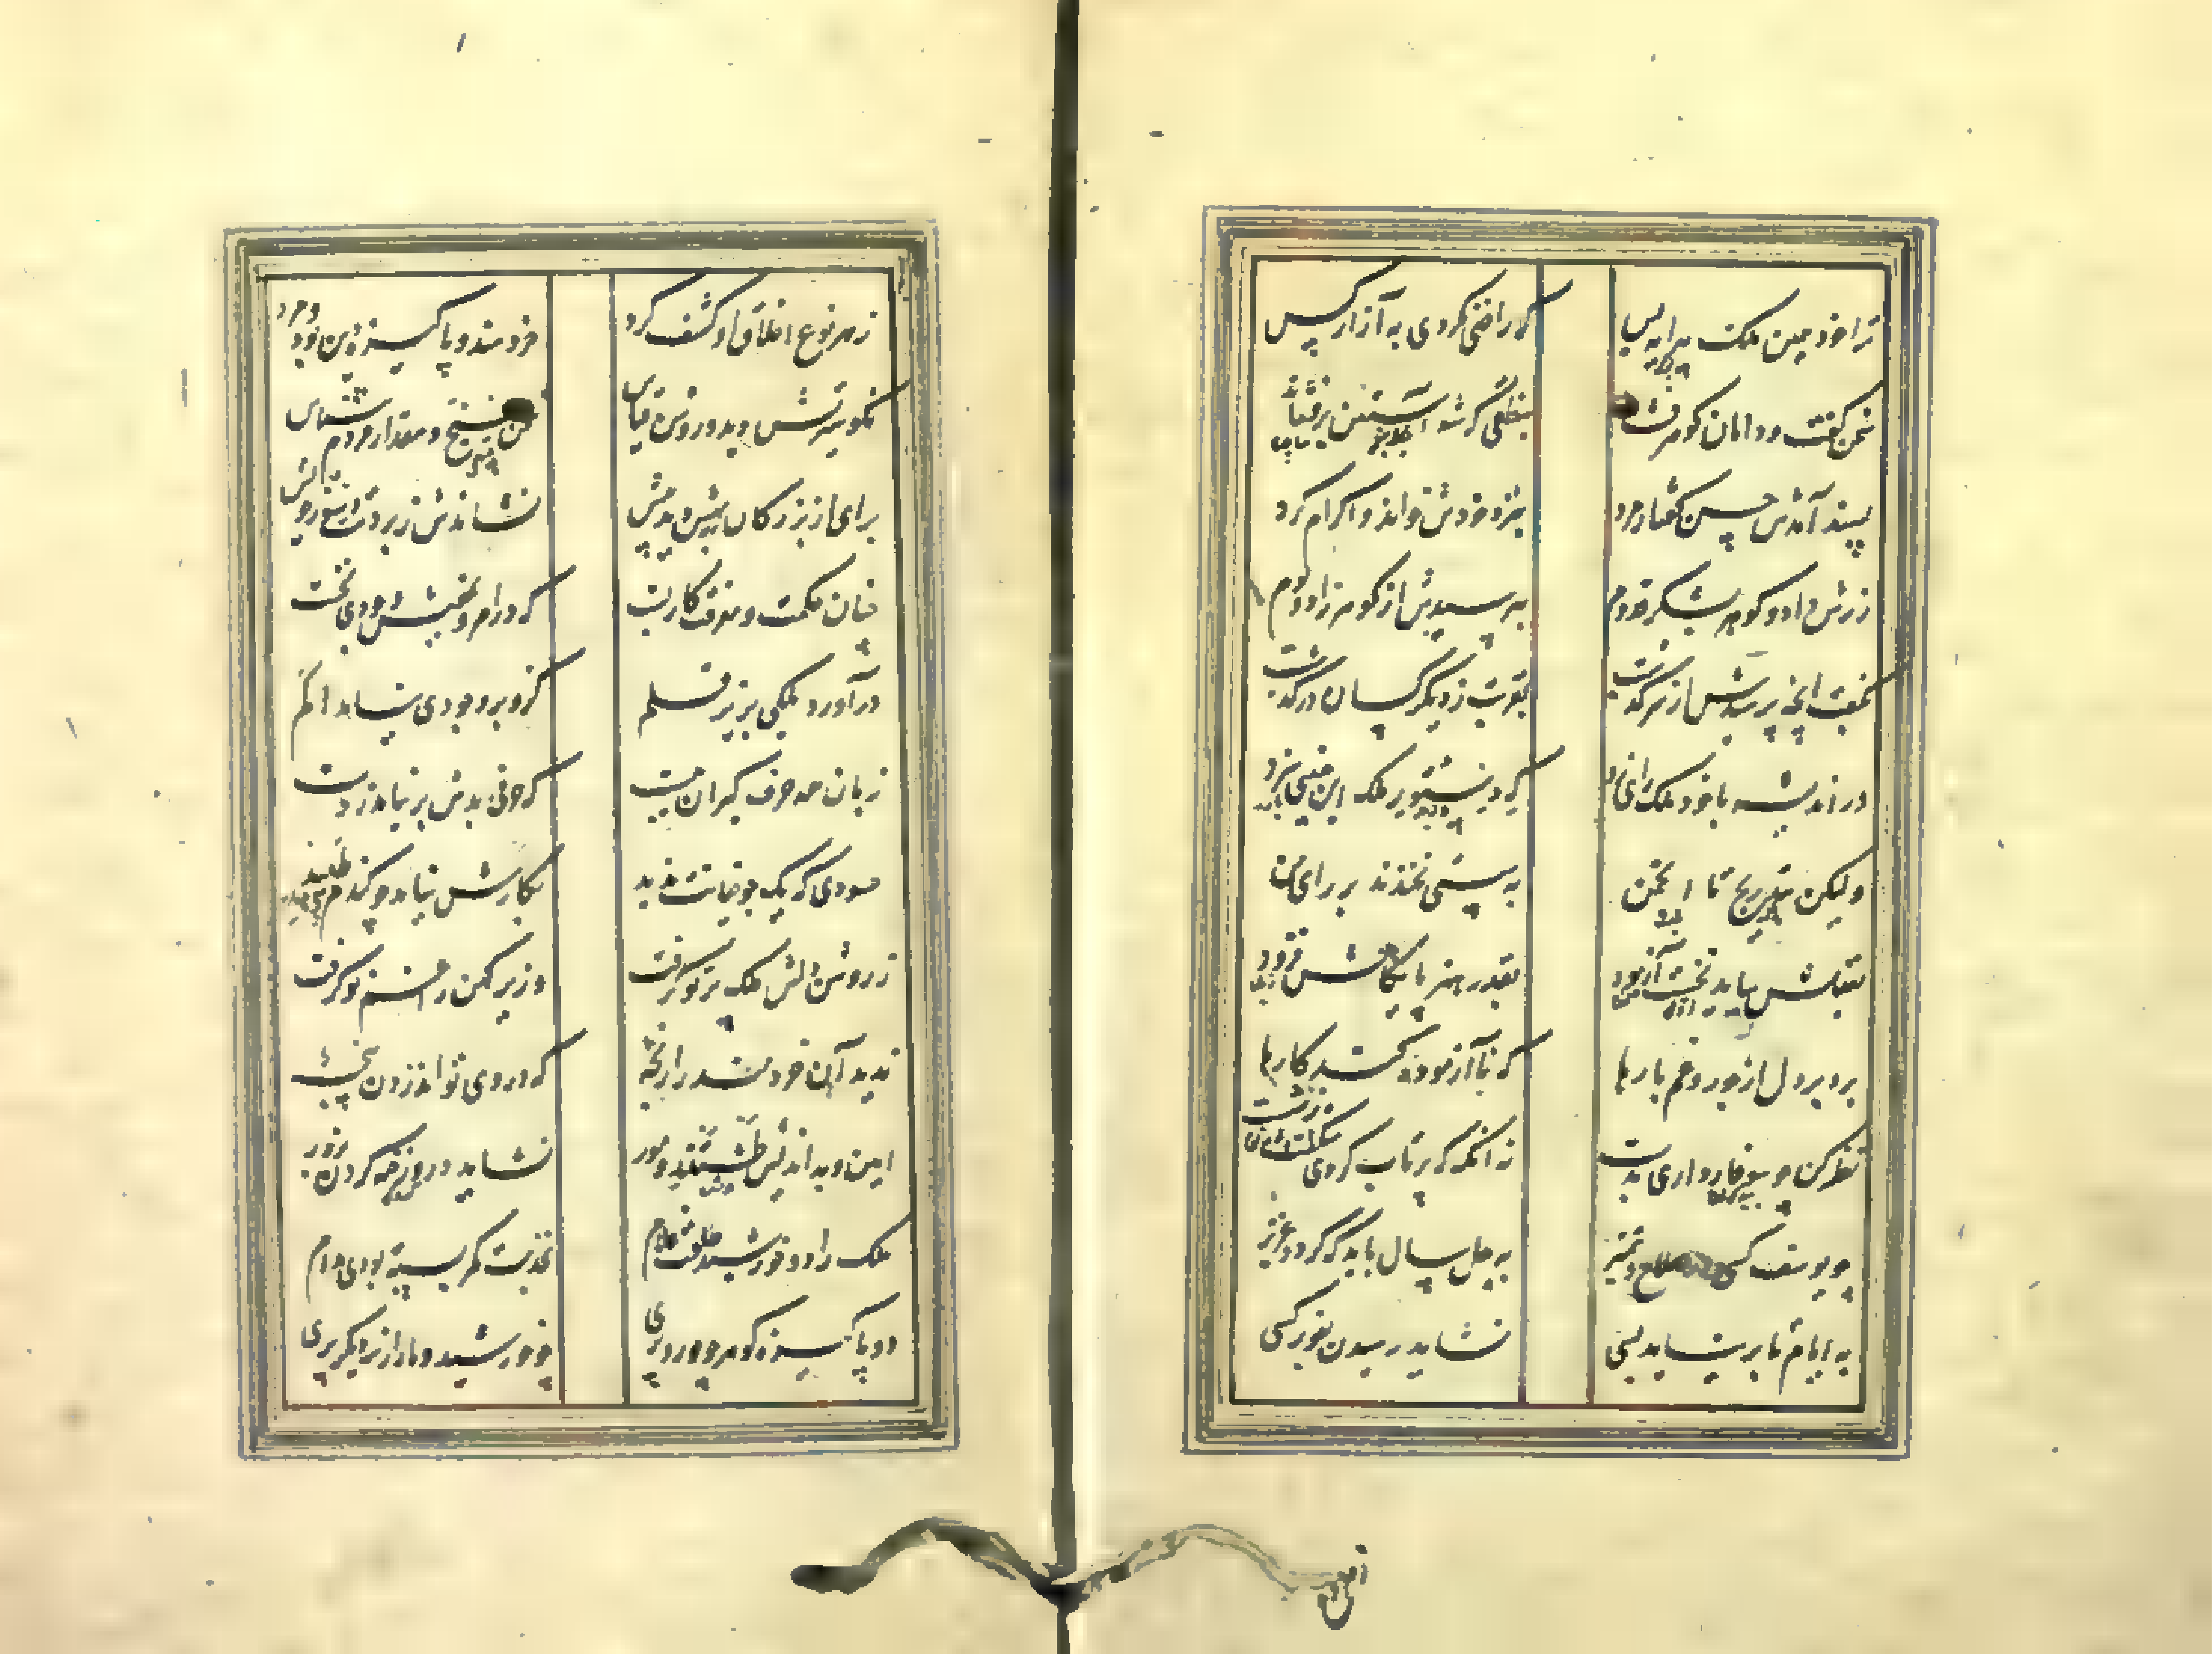 ترا خود همین ملک پیرایه بس که راضی نکردی به آزار کس
سخن گفت و دامان گوهر فشاند بنطقی که شه آستین برفشاند
پسند آمدش حسن گفتار مرد بنزد خودش خواند و اکرام کرد
زرش داد و گوهر بشکر قدوم به پرسیدش از گوهر و زاد و بوم
بگفت آنچه پرسیدش از سرگذشت بقربت ز دیگر کسان درگذشت
در اندیشه با خود ملک رای زد که دستور ملک این چنین سزد
ولیکن بتدریج تا انجمن به سستی نخندند بر رای من
بعقلش بباید نخست آزمود بقدر هنر پایگاهش فزود
برد بر دل از جور و غم بارها که ناآزموده کند کارها
نظر کن چو سوفار داری بدست نه آنگه که پرتاب کردی ز شست
چو یوسف کسی در صلاح و تمیز به چل سال باید که گردد عزیز
به ایام تا بر نیاید بسی نشاید رسیدن بغور کسی
ز هر نوع اخلاق او کشف کرد خردمند و پاکیزه دین بود مرد
نکو سیرتش دید و روشن قیاس سخن سنج و مقدار مردم شناس
برای از بزرگان بهش دید و بیش نشاندش زبردست دستور خویش
چنان حکمت و معرفت کار بست که از امر و نهیش درونی نخست
درآورد ملکی بزیر قلم کزو بر وجودی نیامد الم
زبان همه حرف گیران ببست که حرفی بدش بر نیامد ز دست
حسودی که یک جو خیانت ندید بکارش نیامد چو گندم طپید
ز روشن دلش ملک پرتو گرفت وزیر کهن را غم نو گرفت
ندید آن خردمند را رخنه که در وی تواند زدن طعنه
امین و بد اندیش طشتند و مور نشاید در او رخنه کردن بزور
ملک را دو خورشید طلعت غلام بخدمت کمر بسته بودی مدام
دو پاکیزه گوهر چو حور و پری چو خورشید و ماه از سه دیگر بری